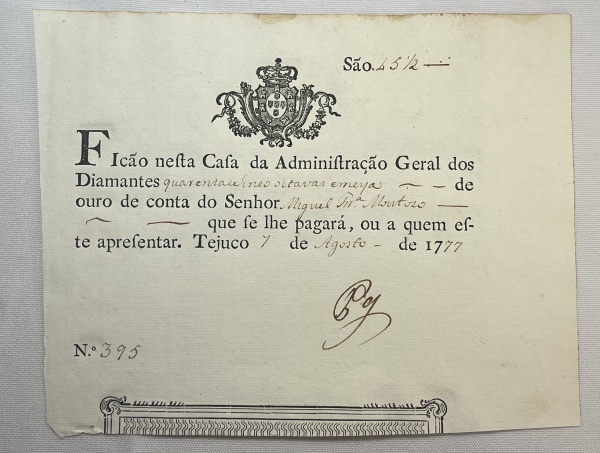 São. 45 1/2
FIcão neſta Caſa da Adminiſtração Geral dos
Diamantes quarenta e sinco oitavas e meya de
ouro de conta do Senhor Miguel Frr.ª
que ſe lhe pagará, ou a quem eſ-
te apreſentar. Tejuco 7 de Agosto de 1777
N.º 395